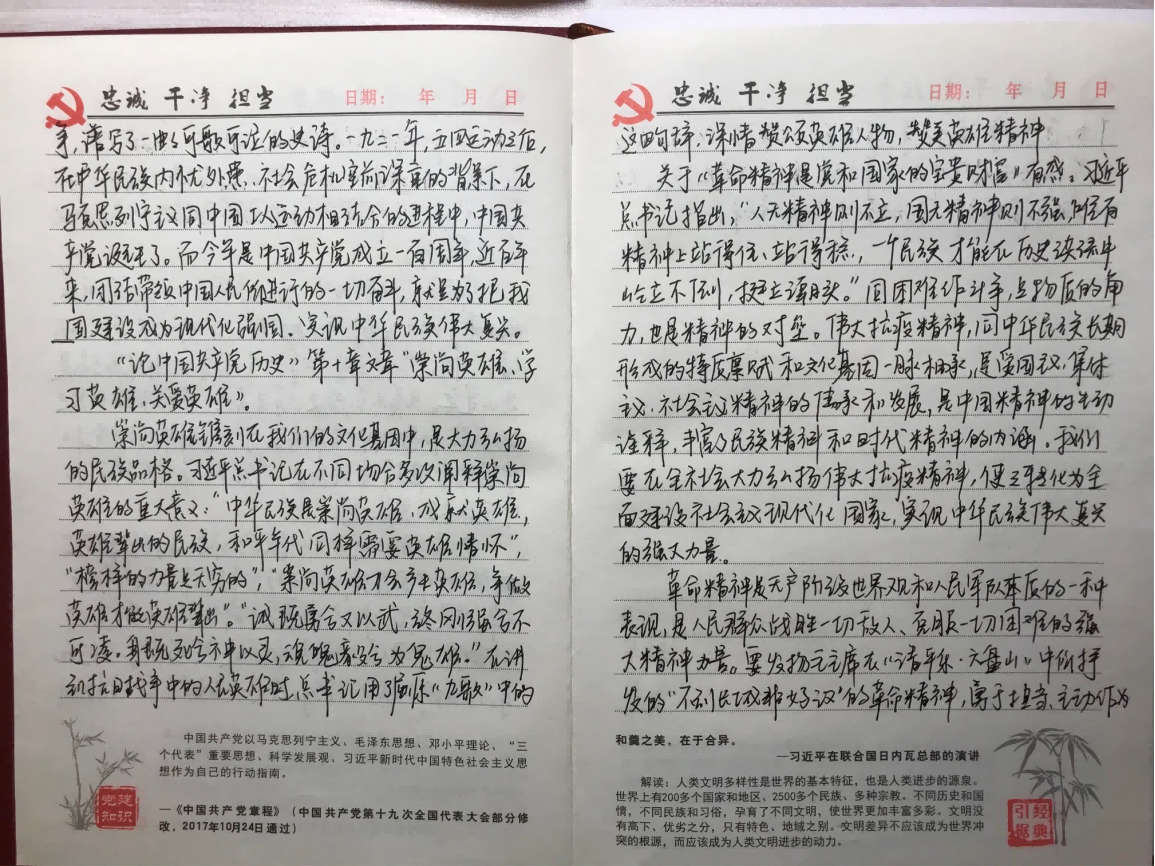 忠诚 干净 担当
日期: 年 月 日
事,谱写了一曲曲可歌可泣的史诗。一九二一年,五四运动之后,
在中华民族内忧外患、社会危机空前深重的背景下,在
马克思列宁主义同中国工人运动相结合的进程中,中国共
产党诞生了。而今年是中国共产党成立一百周年,近百年
来,团结带领中国人民所进行的一切奋斗,就是为了把我
国建设成为现代化强国,实现中华民族伟大复兴。
《论中国共产党历史》第十章文章“崇尚英雄、学
习英雄、关爱英雄》。
崇尚英雄镌刻在我们的文化基因中,是大力弘扬
的民族品格。习近平总书记在不同场合多次阐释崇尚
英雄的重大意义:“中华民族是崇尚英雄,成就英雄,
英雄辈出的民族,和平年代同样需要英雄情怀”,
“榜样的力量是无穷的”,“崇尚英雄才会产生英雄,争做
英雄才能英雄辈出”。“诚既勇兮又以武,终刚强兮不
可凌。身既死兮神以灵,魂魄毅兮为鬼雄。”在讲
到抗日战争中的人民英雄时,总书记用了屈原《九歌》中的
中国共产党以马克思列宁主义、毛泽东思想、邓小平理论、“三
个代表”重要思想、科学发展观、习近平新时代中国特色社会主义思
想作为自己的行动指南。
—《中国共产党章程》(中国共产党第十九次全国代表大会部分修
改,2017年10月24日通过)
党建
知识
忠诚 干净 担当
日期: 年 月 日
这四句辞,深情赞颂英雄人物,赞美英雄精神
关于《革命精神是党和国家的宝贵财富》有感。习近平
总书记指出,“人无精神则不立,国无精神则不强,唯有
精神上站得住、站得稳,一个民族才能在历史洪流中
屹立不倒,挺立潮头。”同困难作斗争,是物质的角
力,也是精神的对垒。伟大抗疫精神,同中华民族长期
形成的特质禀赋和文化基因一脉相承,是爱国主义、集体
主义、社会主义精神的传承和发展,是中国精神的生动
诠释,丰富了民族精神和时代精神的内涵。我们
要在全社会大力弘扬伟大抗疫精神,使之转化为全
面建设社会主义现代化国家,实现中华民族伟大复兴
的强大力量。
革命精神是无产阶级世界观和人民军队本质的一种
表现,是人民群众战胜一切敌人、克服一切困难的强
大精神力量。要发扬毛主席在《清平乐·六盘山》中所抒
发的“不到长城非好汉”的革命精神,勇于担当、主动作为
和羹之美,在于合异。
—习近平在联合国日内瓦总部的演讲
解读:人类文明多样性是世界的基本特征,也是人类进步的源泉。
世界上有200多个国家和地区、2500多个民族、多种宗教。不同历史和国
情,不同民族和习俗,孕育了不同文明,使世界更加丰富多彩。文明没
有高下、优劣之分,只有特色、地域之别。文明差异不应该成为世界冲
突的根源,而应该成为人类文明进步的动力。
经典
引据